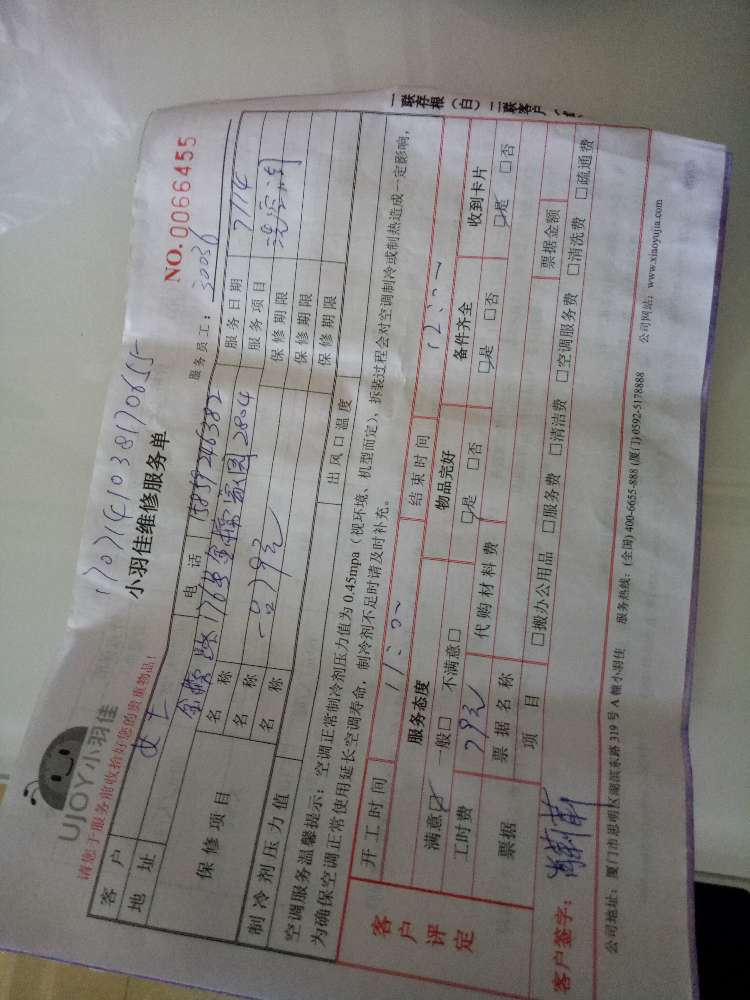 UJOY小羽佳
请您于服务前收拾好您的贵重物品!
1707141038170655
小羽佳维修服务单
NO. 0066455
服务员工: 30036
客户 女士 电话 15859246382 服务日期 7/14
地址 金榜路176号金榜家园2804 服务项目 洗空调
保修项目 名称 一台79元 保修期限
名称 保修期限
名称 保修期限
制冷剂压力值 出风口温度
空调服务温馨提示: 空调正常制冷剂压力值为 0.45mpa (视环境、机型而定), 拆装过程会对空调制冷或制热造成一定影响,
为确保空调正常使用延长空调寿命, 制冷剂不足时请及时补充。
一联存根(白) 二联客户
客户评定
开工时间 11:00 结束时间 12:00
服务态度 物品完好 备件齐全 收到卡片
满意☑ 一般□ 不满意□ □是 □否 □是 □否 ☑是 □否
工时费 79元 代购材料费
票据 票据名称 票据金额
项目 □搬办公用品 □服务费 □清洁费 □空调服务费 □清洗费 □疏通费
客户签字:
公司地址: 厦门市思明区湖滨东路 319 号 A 幢小羽佳 服务热线: (全国) 400-6655-888 (厦门) 0592-5178888 公司网站: www.xiaoyujia.com